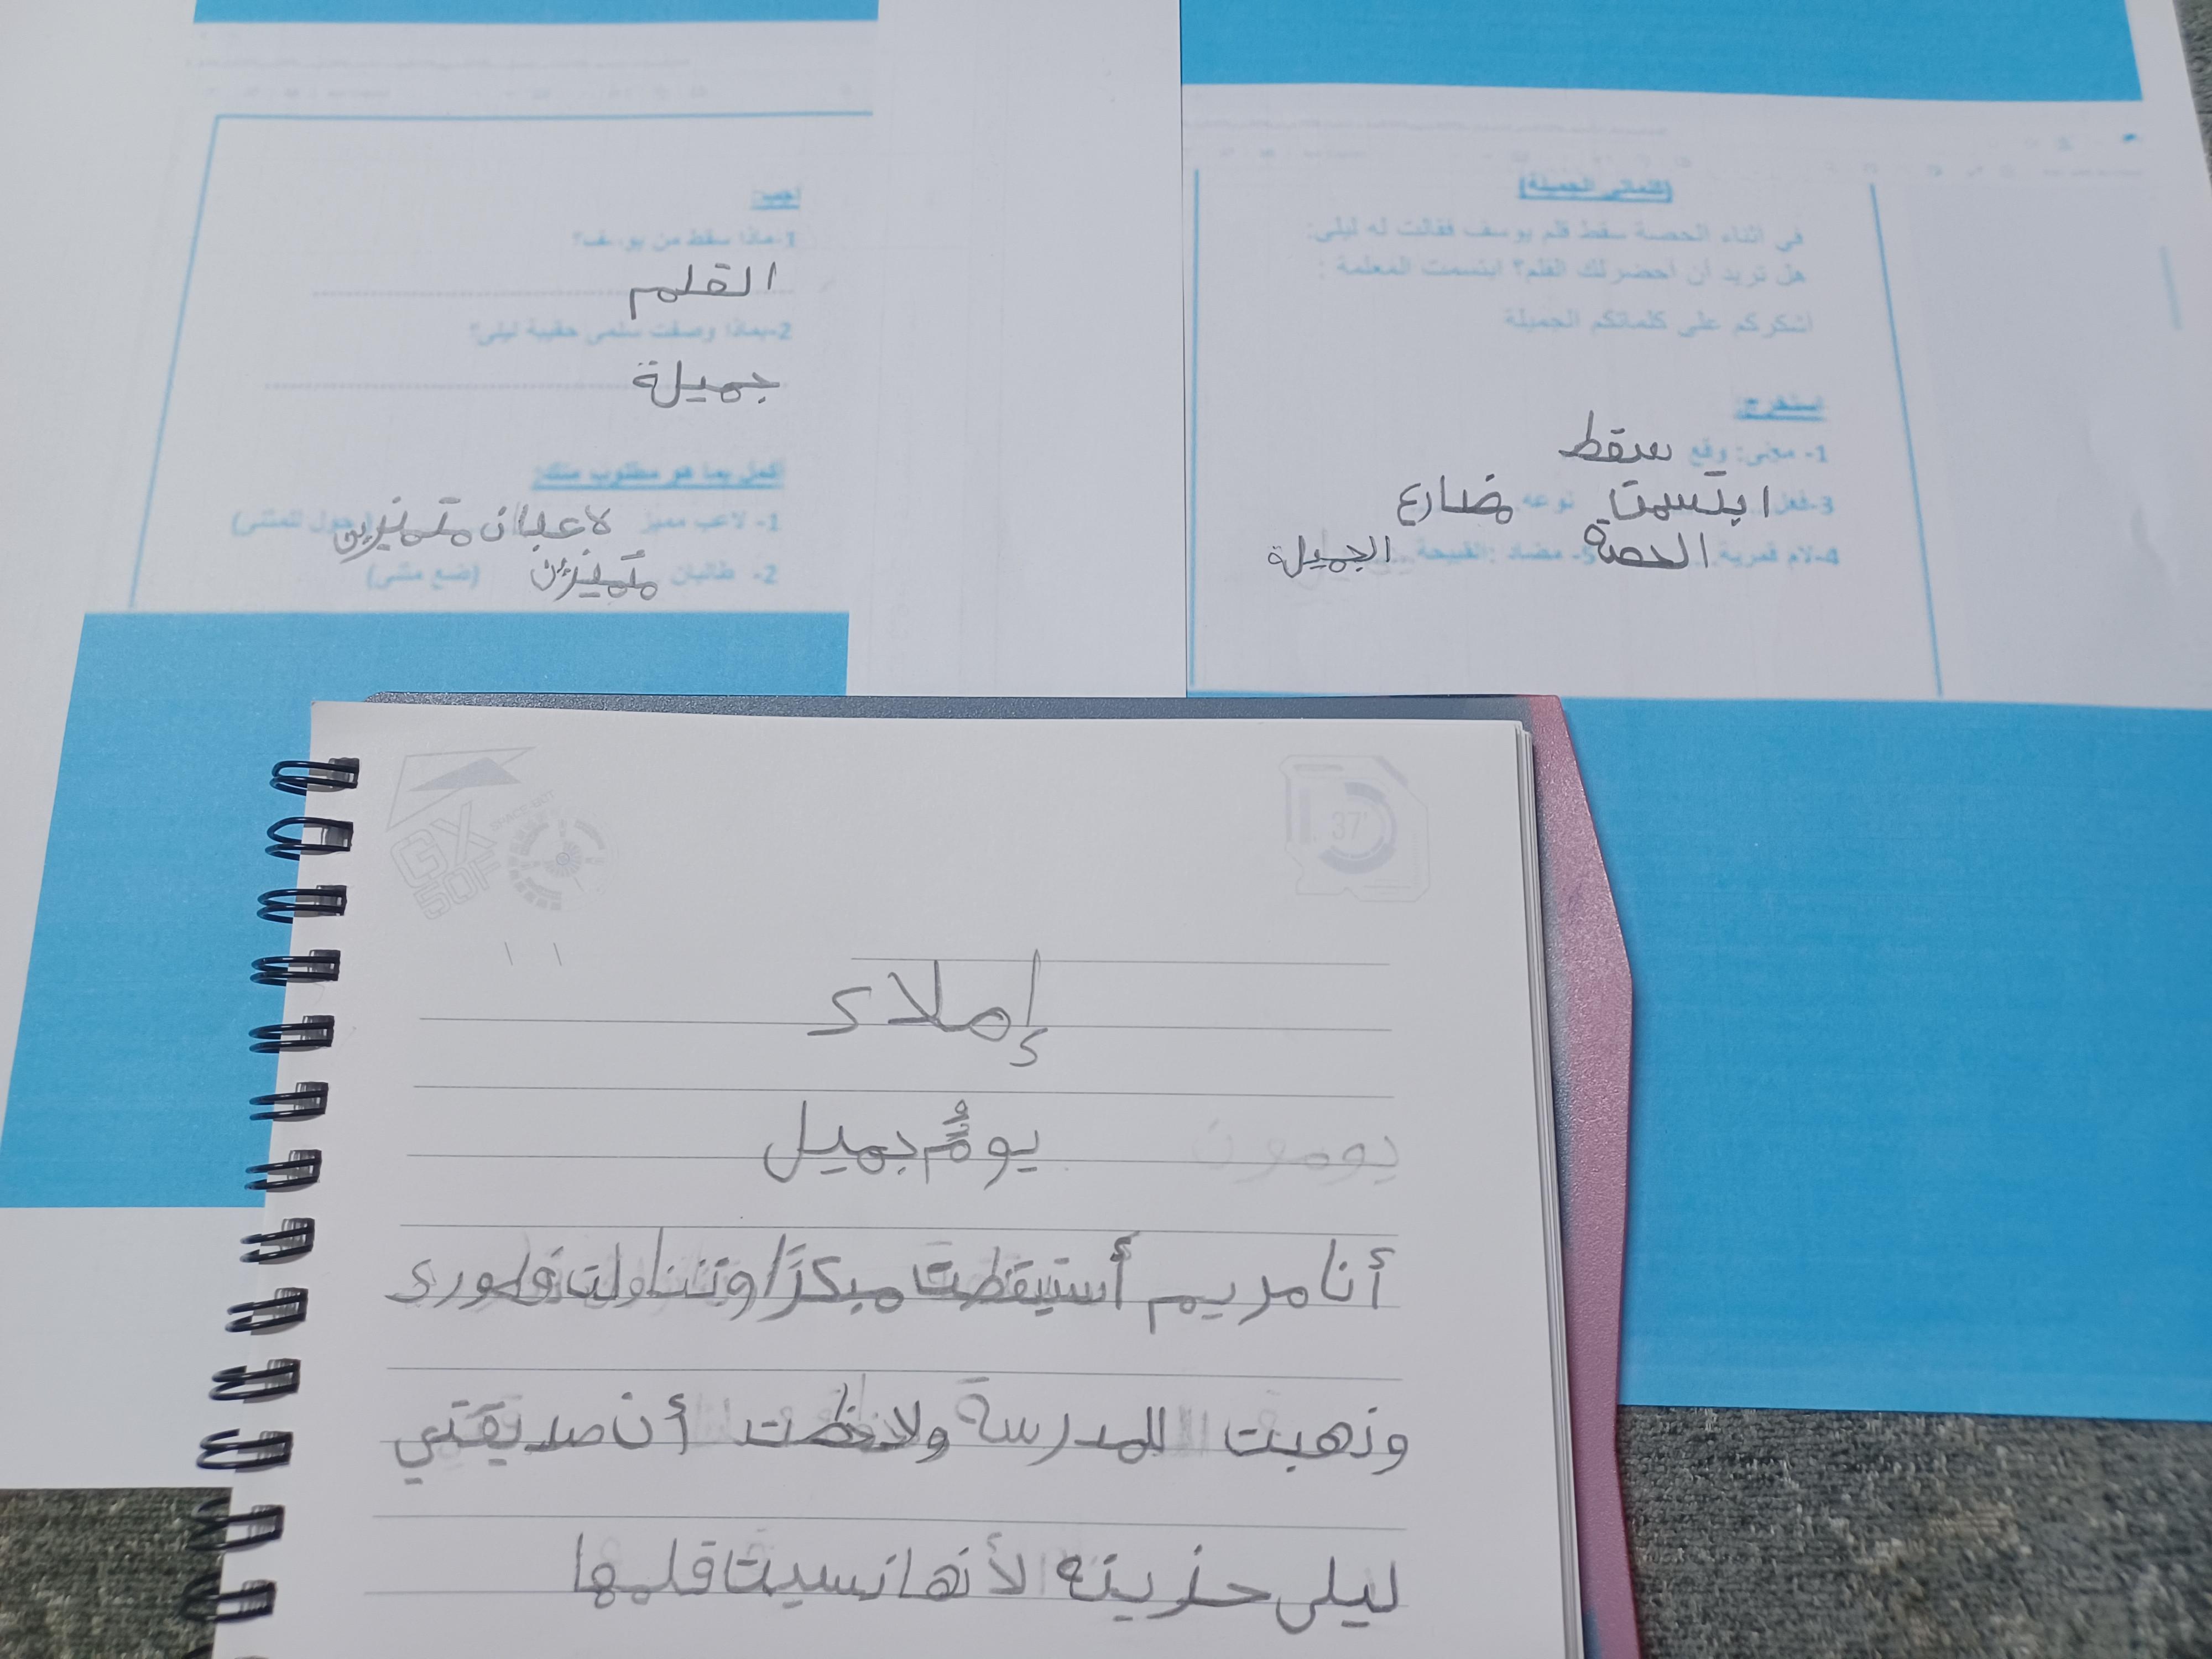 (كلماتي الجميلة)
في أثناء الحصة سقط قلم يوسف فقالت له ليلى:
هل تريد أن أحضر لك القلم؟ ابتسمت المعلمة :
أشكركم على كلماتكم الجميلة
استخرج:
1- معنى: وقع سقط
3-فعل ابتسمت نوعه مضارع
4-لام قمرية الحصة 5- مضاد :القبيحة الجميلة
أجب:
1-ماذا سقط من يوسف؟
القلم
2-بماذا وصفت سلمى حقيبة ليلى؟
جميلة
أكمل بما هو مطلوب منك:
1- لاعب مميز لاعبان متميزين (حول للمثنى)
2- طالبان متميزين (ضع مثنى)
GX
50F
SPACE BOT
37'
إملاء
يومون
يومٌ جميل
أنا مريم أستيقظت مبكرًا وتناولت فطورى
وذهبت للمدرسة ولاحظت أن صديقتي
ليلى حزينه لأنها نسيت قلمها